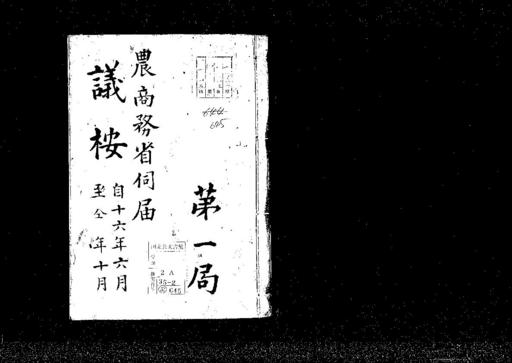 第一局
農商務省伺届
議按
自十六年六月
至仝年十月
644
645
国立公文書館
2A
35-2
645